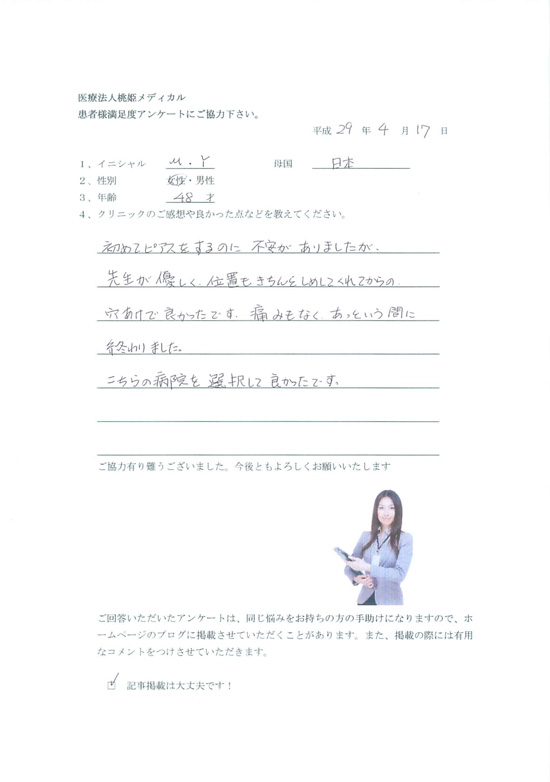 医療法人桃姫メディカル
患者様満足度アンケートにご協力下さい。
平成 29 年 4 月 17 日
1、イニシャル M.Y 母国 日本
2、性別 女性・男性
3、年齢 48 才
4、クリニックのご感想や良かった点などを教えてください。
初めてピアスをするのに 不安が ありましたが、
先生が 優しく、位置も きちんとしめしてくれてからの
穴あけで 良かったです。痛みもなく、あっという間に
終わりました。
こちらの病院を 選択して 良かったです。
ご協力有り難うございました。今後ともよろしくお願いいたします
ご回答いただいたアンケートは、同じ悩みをお持ちの方の手助けになりますので、ホ
ームページのブログに掲載させていただくことがあります。また、掲載の際には有用
なコメントをつけさせていただきます。
記事掲載は大丈夫です！